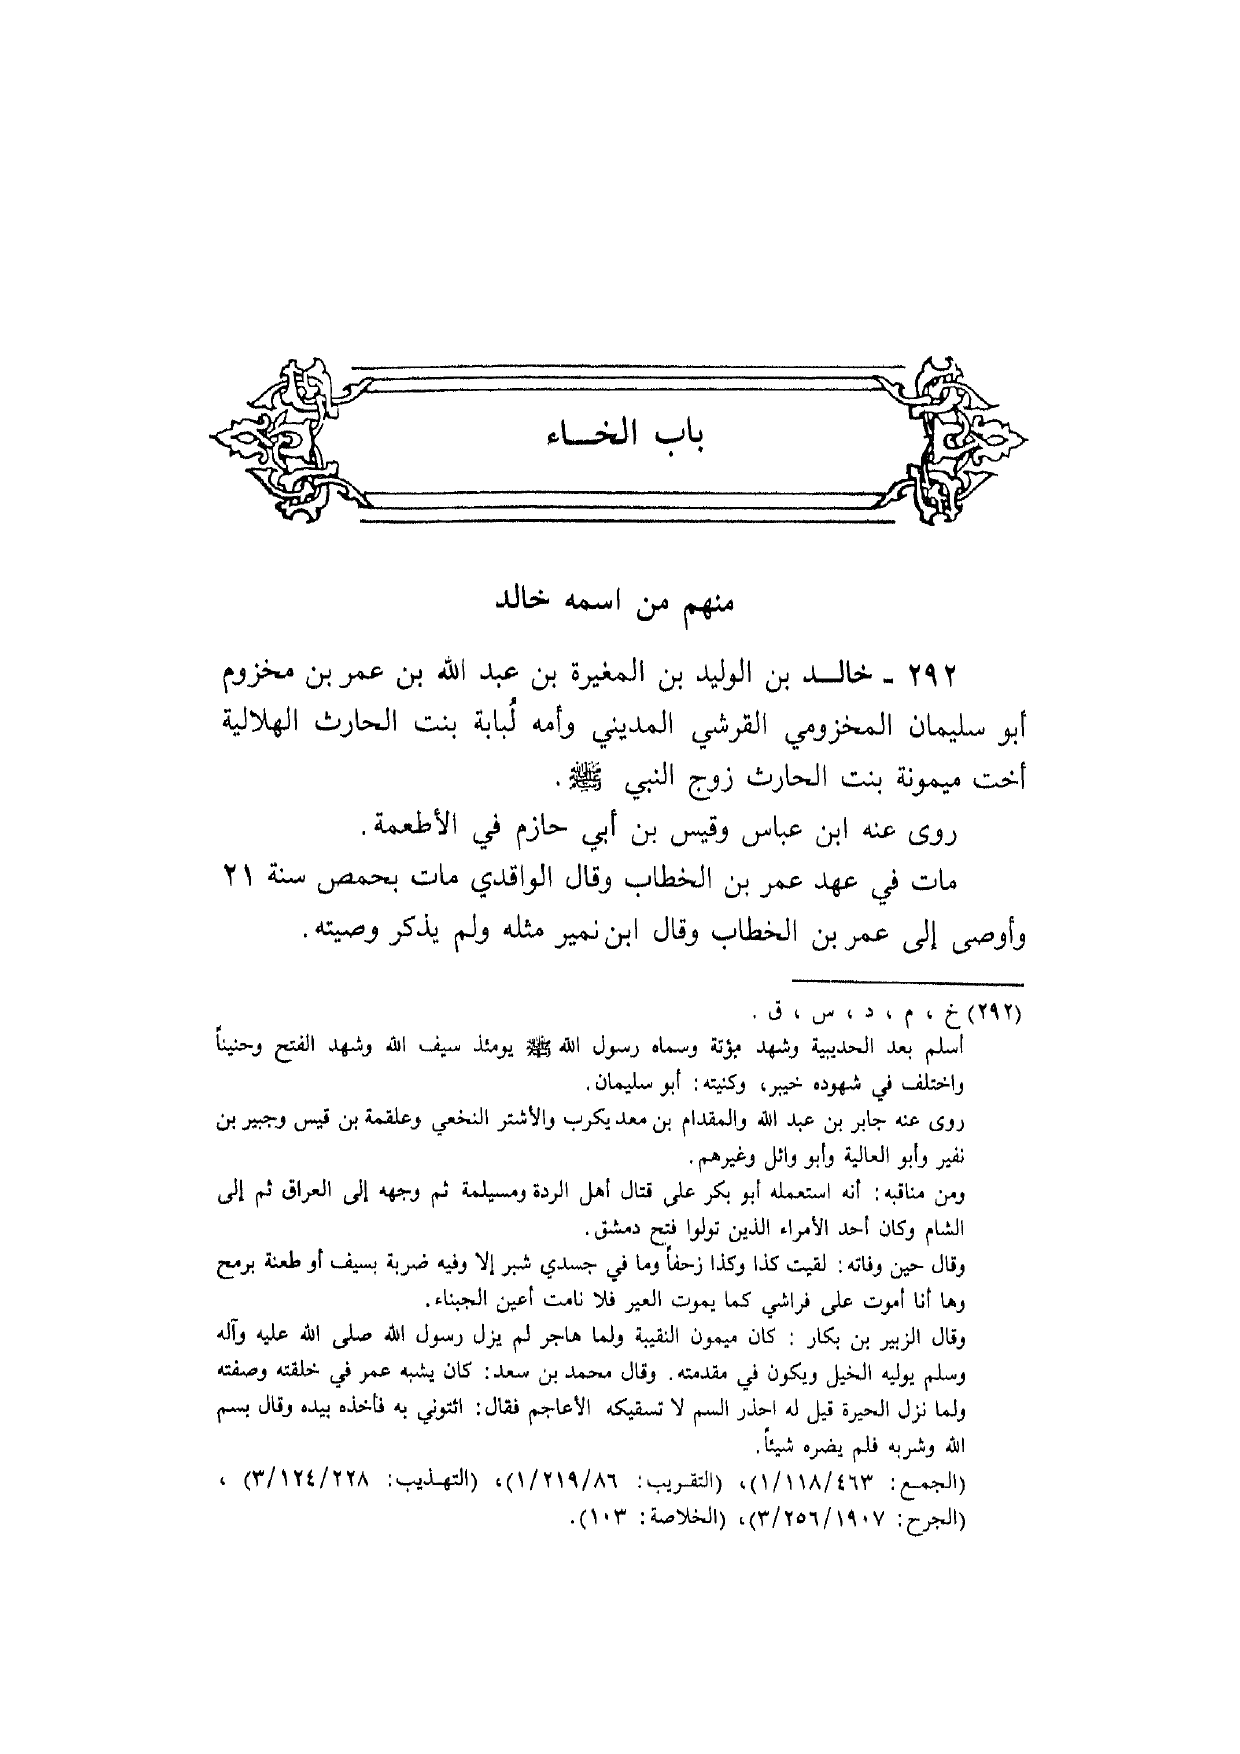 باب الخــاء
منهم من اسمه خالد
٢٩٢ ـ خالــد بن الوليد بن المغيرة بن عبد الله بن عمر بن مخزوم
أبو سليمان المخزومي القرشي المديني وأمه لُبابة بنت الحارث الهلالية
أخت ميمونة بنت الحارث زوج النبي ﷺ .
روى عنه ابن عباس وقيس بن أبي حازم في الأطعمة .
مات في عهد عمر بن الخطاب وقال الواقدي مات بحمص سنة ٢١
وأوصى إلى عمر بن الخطاب وقال ابن نمير مثله ولم يذكر وصيته .
(٢٩٢) خ ، م ، د ، س ، ق .
أسلم بعد الحديبية وشهد مؤتة وسماه رسول الله ﷺ يومئذ سيف الله وشهد الفتح وحنيناً
واختلف في شهوده خيبر، وكنيته: أبو سليمان.
روى عنه جابر بن عبد الله والمقدام بن معديكرب والأشتر النخعي وعلقمة بن قيس وجبير بن
نفير وأبو العالية وأبو وائل وغيرهم.
ومن مناقبه: أنه استعمله أبو بكر على قتال أهل الردة ومسيلمة ثم وجهه إلى العراق ثم إلى
الشام وكان أحد الأمراء الذين تولوا فتح دمشق.
وقال حين وفاته: لقيت كذا وكذا زحفاً وما في جسدي شبر إلا وفيه ضربة بسيف أو طعنة برمح
وها أنا أموت على فراشي كما يموت العير فلا نامت أعين الجبناء.
وقال الزبير بن بكار : كان ميمون النقيبة ولما هاجر لم يزل رسول الله صلى الله عليه وآله
وسلم يوليه الخيل ويكون في مقدمته. وقال محمد بن سعد: كان يشبه عمر في خلقته وصفته
ولما نزل الحيرة قيل له احذر السم لا تسقيكه الأعاجم فقال: ائتوني به فأخذه بيده وقال بسم
الله وشربه فلم يضره شيئاً.
(الجمع: ١/١١٨/٤٦٣)، (التقريب: ١/٢١٩/٨٦)، (التهذيب: ٣/١٢٤/٢٢٨) ،
(الجرح: ٣/٢٥٦/١٩٠٧)، (الخلاصة: ١٠٣).